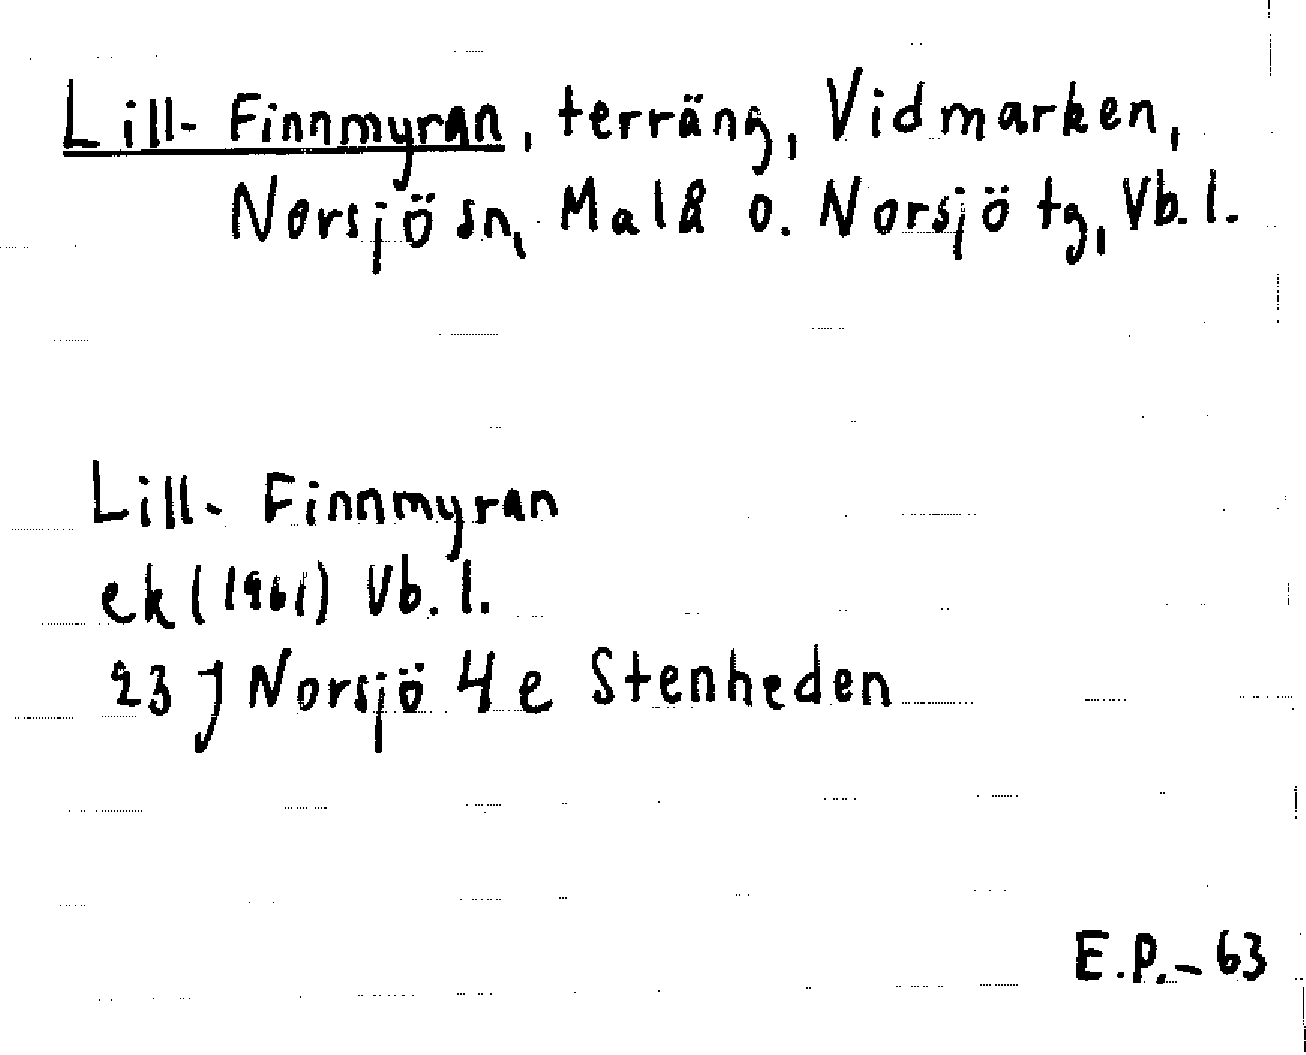 Lill-Finnmyran, terräng, Vidmarken,
Norsjö sn, Malå o. Norsjö tg, Vb. l.
Lill-Finnmyran
ek (1961) Vb. l.
23 J Norsjö 4 e Stenheden
E.P.-63